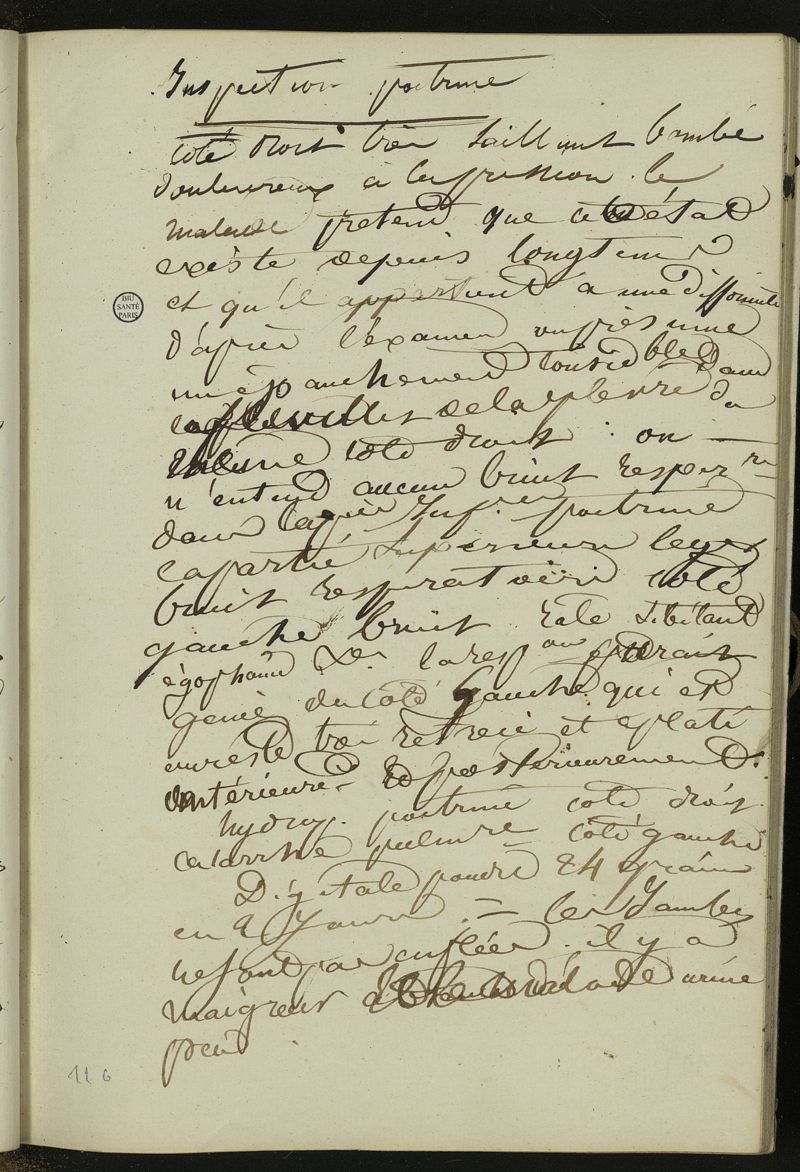 Inspection poitrine
coté droit très saillant bombé
douloureux à la pression. le
malade pretend que cet état
existe depuis longtems
et qu'il appartient a une difformité
d'après l'examen
un épanchement dans
les feuillets de la plevre du
même coté droit : on
n'entend aucun bruit respir re
dans la partie infre poitrine
la partie superieure leger
bruit respiratoire coté
gauche bruit rale sibilant
égophonie la respon parait
genée du coté gauche qui est
au reste très retreci et aplati
antérieure et postérieurement.
hydrop. poitrine coté droit
catarrhe pulmre coté gauche
Digitale poudre 24 grains
en 2 Jours. = les Jambes
ne sont pas enflées. il y a
maigreur malade urine
peu
116
BIU
SANTÉ
PARIS